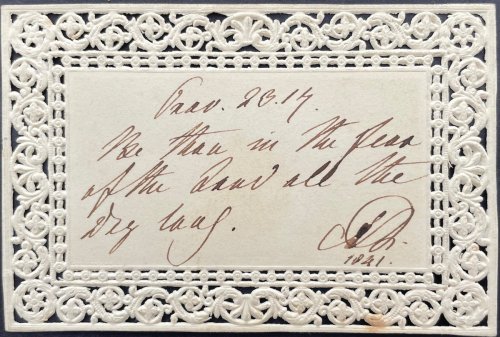 Prov. 23.17.
Be thou in the fear
of the Lord all the
day long.
1841.